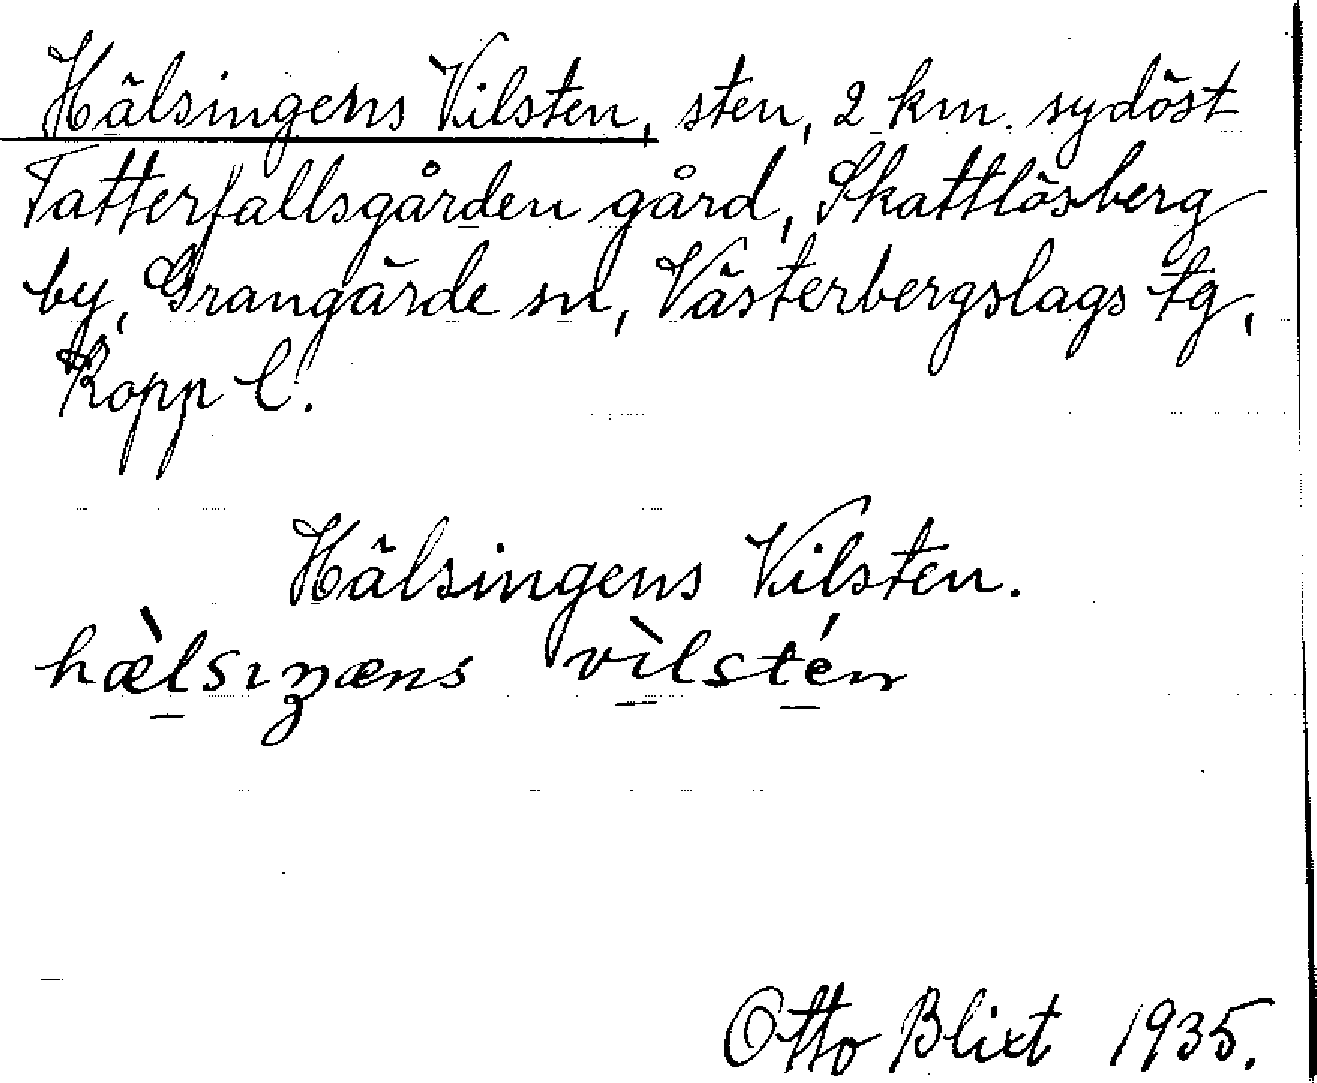 Hälsingens Vilsten, sten, 2 km. sydöst
Tatterfallsgården gård, Skattlösberg
by, Grangärde sn, Västerbergslags tg,
Kopp l.
Hälsingens Vilsten.
hæ̀lsıŋæns vìlstén
Otto Blixt 1935.